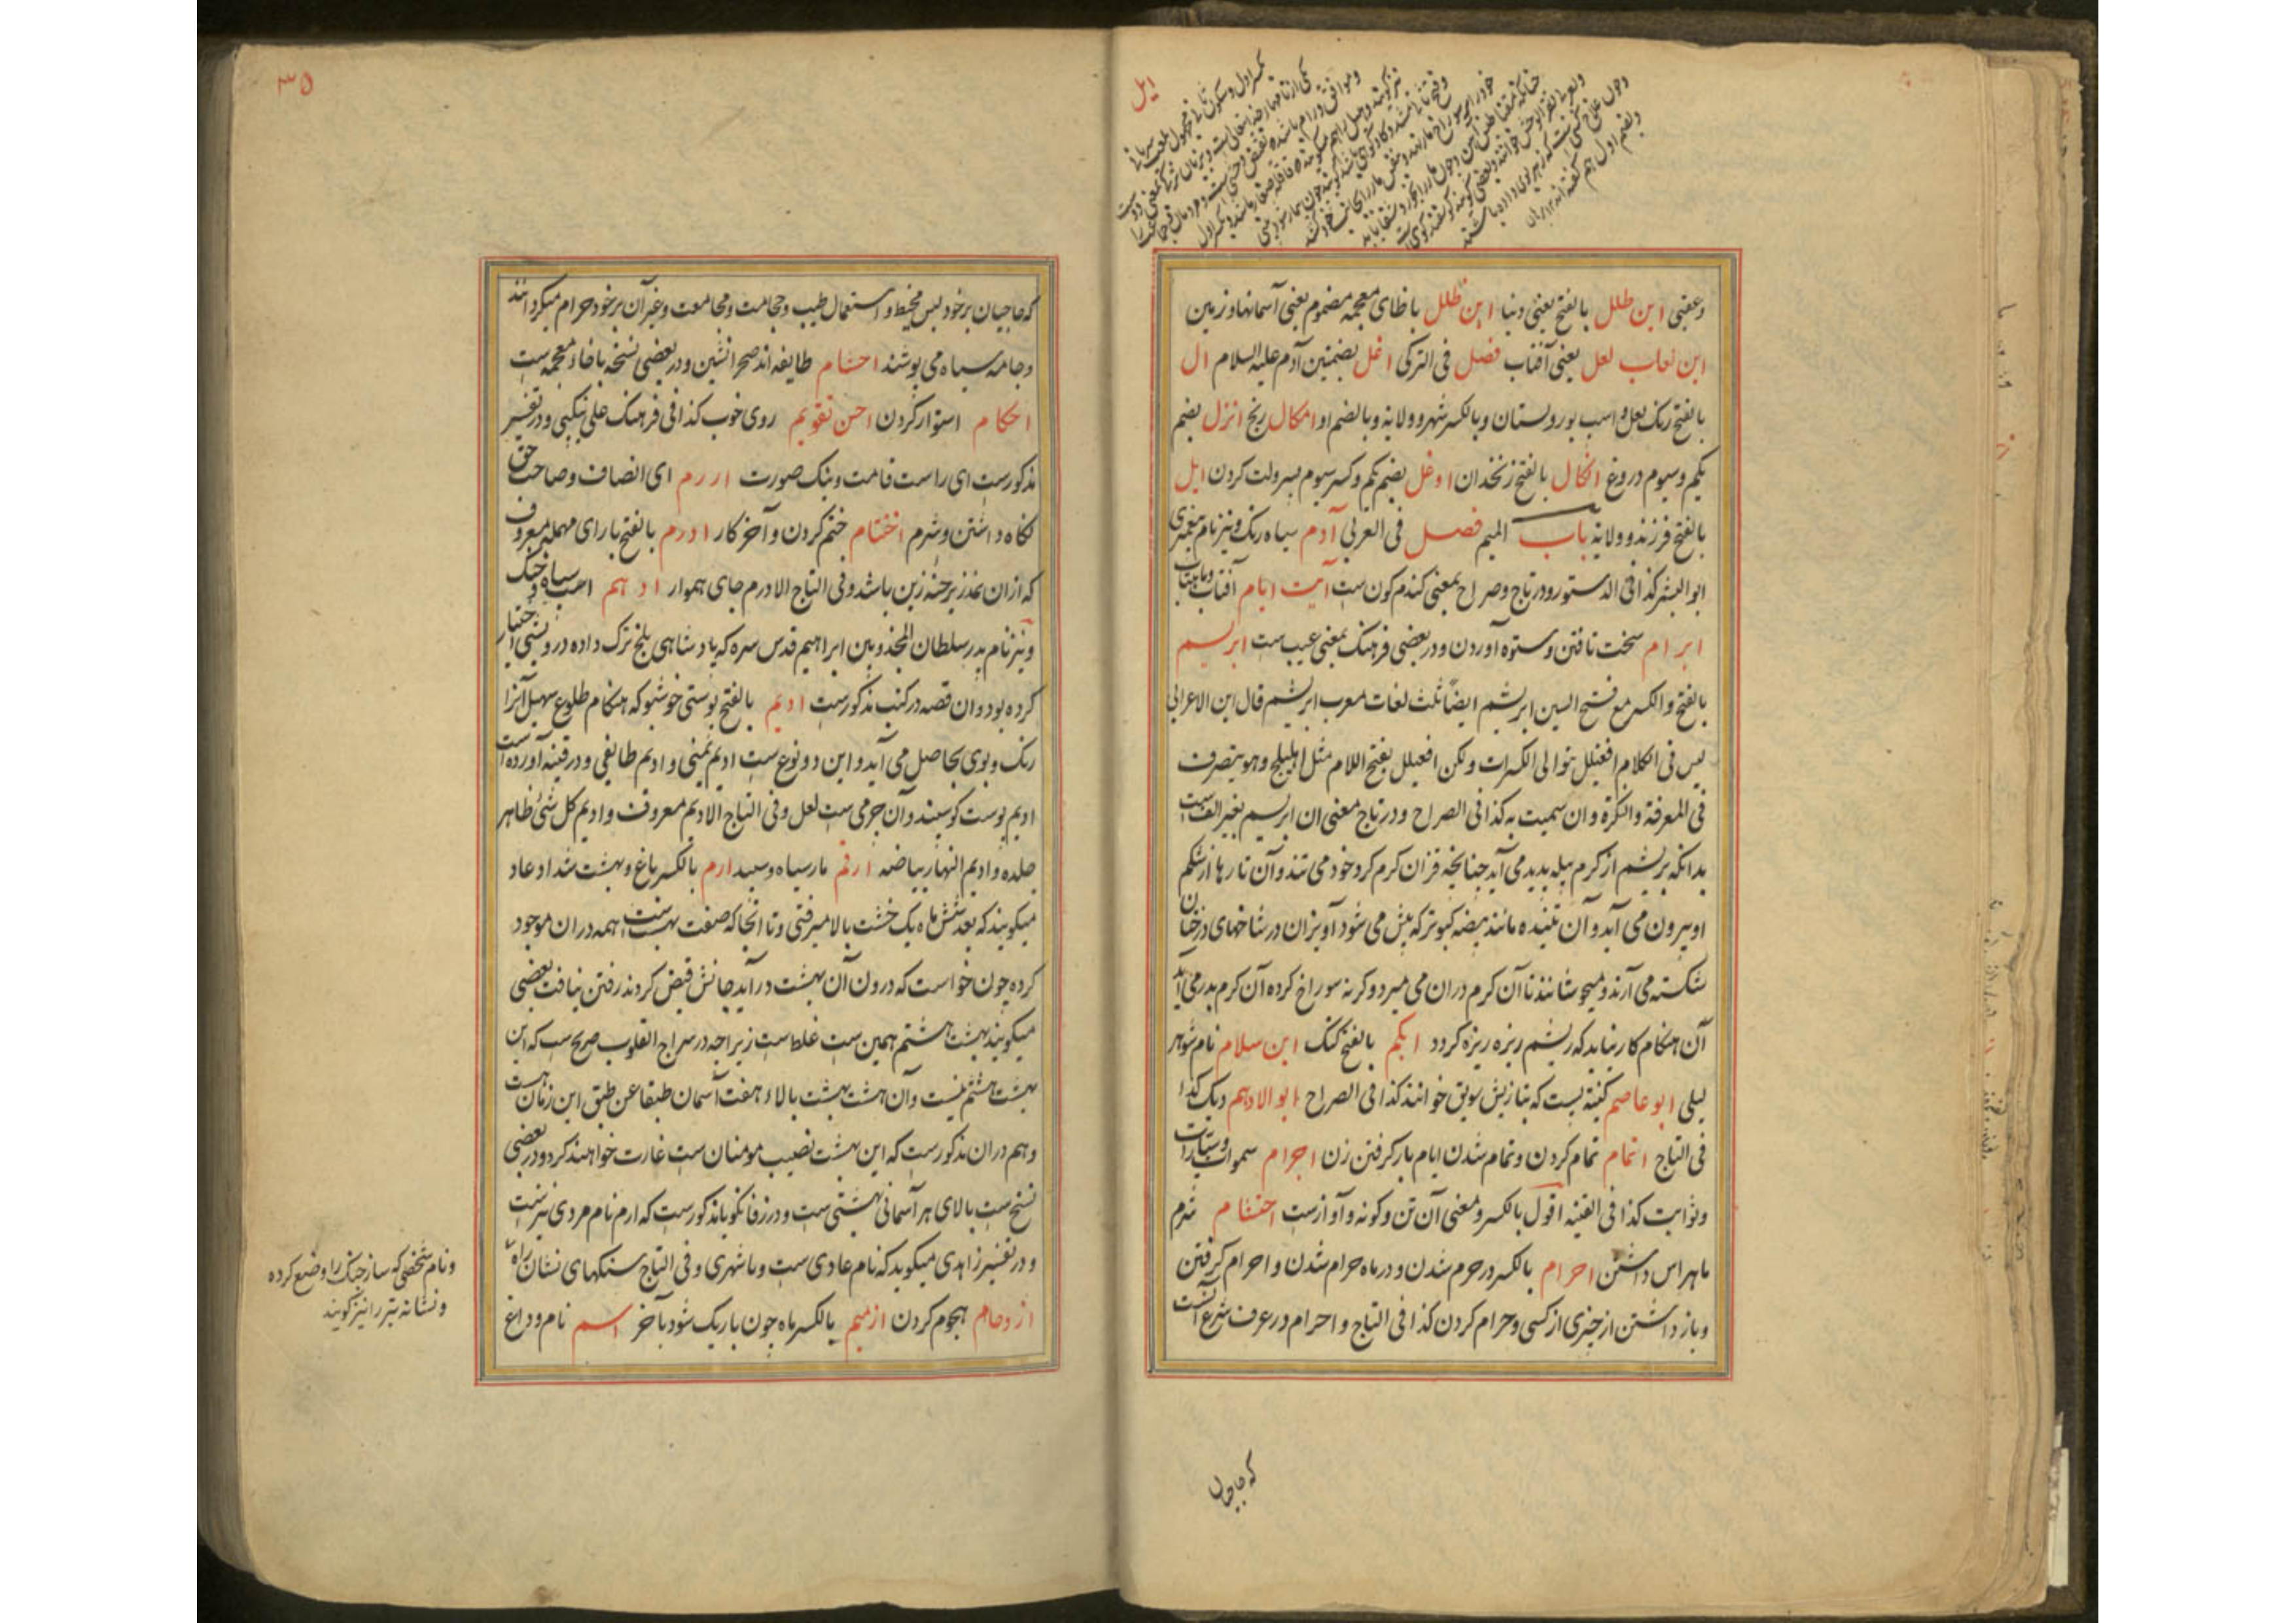 ایل
وعقبی ابن طلل بالفتح یعنی دنیا ابن ظلل با ظای معجمه مضموم یعنی آسمانها و زمین
ابن لعاب لعل یعنی آفتاب فصل فی الترکی اغل بضمتین آدم علیه السلام ال
بالفتح رنک لعل و اسب بور و بستان و بالکسر شهر و ولایة و بالضم او امکال رنج انزل بضم
یکم و سیوم دروغ انکال بالفتح زنخدان اوغل بضم یکم و کسر سیوم بسرولت کردن ایل
بالفتح فرزند و ولایة باب المیم فصل فی العربی آدم سیاه رنک و نیز نام پیغمبری
ابو البشر کذا فی الدستور و در تاج و صراح بمعنی کندم کون ست آیت ایام آفتاب و ماهتاب
ابرام سخت تافتن و ستوه آوردن و در بعضی فرهنک بمعنی عیب ست ابریسم
بالفتح و الکسر مع فتح السین ابریشم ایضاً ثلث لغات معرب ابریشم قال ابن الاعرابی
لیس فی الکلام افعیلل بتوالی الکسرات و لکن افعیلل بفتح اللام مثل اهلیلج و هو یتصرف
فی المعرفة و النکرة و ان سمیت به کذا فی الصراح و در تاج معنی ان ابریسم بغیر الف ست
بدانکه بریشم از کرم پیله پدید می آید چنانچه قز ان کرم کرد خود می تند و آن تارها از شکم
او بیرون می آید و آن تنیده مانند بیضه کبوتر که بیش می شود آویزان در شاخهای درختان
شکسته می آرند و میجوشانند تا آن کرم دران می میرد و کرنه سوراخ کرده آن کرم بدر می آید
آن هنکام کار نیاید که ریشم ریزه ریزه کردد ابکم بالفتح کنک ابن سلام نام شوهر
لیلی ابو عاصم کنیة پست که بتازیش سویق خوانند کذا فی الصراح ابو الادهم دیک کذا
فی التاج اتمام تمام کردن و تمام شدن ایام بار کرفتن زن اجرام سموات و سیارات
و ثوابت کذا فی القنیه اقول بالکسر و معنی آن تن و کونه و آواز ست احتشام شرم
ماهراس داشتن احرام بالکسر در حرم شدن و در ماه حرام شدن و احرام کرفتن
و باز داشتن از چیزی از کسی و حرام کردن کذا فی التاج و احرام در عرف شرع آنست
که حاجیان
۳۵
که حاجیان بر خود لبس مخیط و استعمال طیب و حجامت و مجامعت و غیر آن بر خود حرام میکردانند
و جامه سیاه می پوشند احشام طایفه اند صحرا نشین و در بعضی نسخه با خاء معجمه ست
احکام استوار کردن احسن تقویم روی خوب کذا فی فرهنک علی نیکبی و در تفسیر
مذکورست ای راست قامت و نیک صورت اررم ای انصاف و صاحب حق
نکاه داشتن و شرم اختتام ختم کردن و آخر کار ادرم بالفتح با رای مهمله معروف
که ازان نمد زیر حشه زین باشد و فی التاج الادرم جای هموار ادهم اسب سیاه خنک
و نیز نام پدر سلطان المجذوبین ابراهیم قدس سره که پادشاهی بلخ ترک داده درویشی اختیار
کرده بود و ان قصه در کتب مذکورست ادیم بالفتح پوستی خوشبو که هنکام طلوع سهیل آنرا
رنک و بوی بحاصل می آید و این دو نوع ست ادیم یمنی و ادیم طایفی و در قنیه آورده است
ادیم پوست کوسپند و آن چرمی ست لعل و فی التاج الادیم معروف و ادیم کل شئ ظاهر
جلده و ادیم النهار بیاضه ارقم مار سیاه و سپید ارم بالکسر باغ و بهشت شداد عاد
میکویند که بعد شش ماه یک خشت بالا میرفتی و تا انجا که صفت بهشت ست همه دران موجود
کرده چون خواست که درون آن بهشت در آید جانش قبض کردند رفتن نیافت بعضی
میکویند بهشت هشتم همین ست غلط ست زیراچه در سراج القلوب صریح ست که این
بهشت هشتم نیست و آن هشت بهشت بالاء هفت آسمان طبقا عن طبق این زمان هست
و هم دران مذکورست که این بهشت نصیب مومنان ست غارت خواهند کرد و در بعضی
نسخ ست بالای هر آسمانی بهشتی ست و در زفانکویا مذکورست که ارم نام مردی نیز ست
و در تفسیر زاهدی میکوید که نام عادی ست و یا شهری و فی التاج سنکهای نشان راه
ازدحام هجوم کردن ازمیم بالکسر ماه چون باریک شود بآخر اسم نام و داغ
و نام شخصی که ساز چنک را وضع کرده
و نشانه تیر را نیز کویند